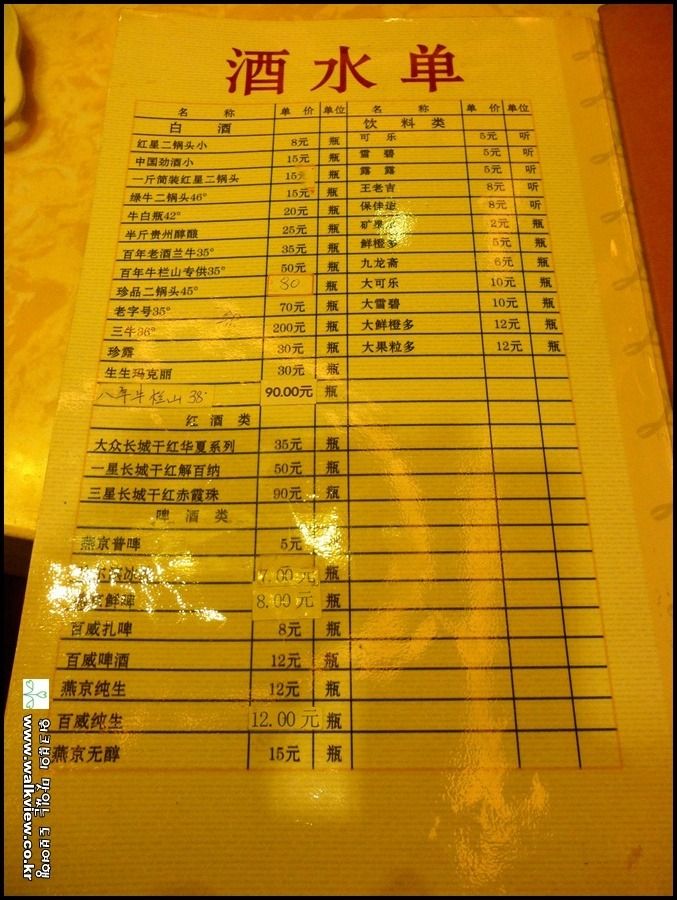 酒水单
名 称 单 价 单位 名 称 单 价 单位
白 酒 饮 料 类
红星二锅头小 8元 瓶 可 乐 5元 听
中国劲酒小 15元 瓶 雪 碧 5元 听
一斤简装红星二锅头 15元 瓶 露 露 5元 听
绿牛二锅头46° 15元 瓶 王老吉 8元 听
牛白瓶42° 20元 瓶 保佳 8元 听
半斤贵州醇酿 25元 瓶 2元 瓶
百年老酒兰牛35° 35元 瓶 鲜橙多 5元 瓶
百年牛栏山专供35° 50元 瓶 九龙斋 6元 瓶
珍品二锅头45° 80 瓶 大可乐 10元 瓶
老字号35° 70元 瓶 大雪碧 10元 瓶
三牛36° 200元 瓶 大鲜橙多 12元 瓶
珍露 30元 瓶 大果粒多 12元 瓶
生生玛克丽 30元 瓶
八年牛栏山 38° 90.00元 瓶
红 酒 类
大众长城干红华夏系列 35元 瓶
一星长城干红解百纳 50元 瓶
三星长城干红赤霞珠 90元 瓶
啤 酒 类
燕京普啤 5元 瓶
7.00元 瓶
鲜啤 8.00元 瓶
百威扎啤 8元 瓶
百威啤酒 12元 瓶
燕京纯生 12元 瓶
百威纯生 12.00元 瓶
燕京无醇 15元 瓶
www.walkview.co.kr